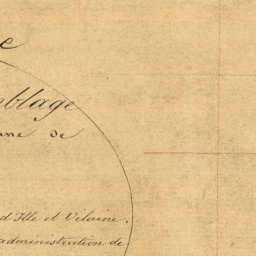 e
blage
de
d'Ille et Vilaine.
administration de